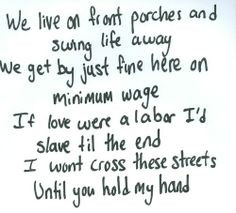 We live on front porches and
swing life away
We get by just fine here on
minimum wage
If love were a labor I'd
slave til the end
I wont cross these streets
Until you hold my hand